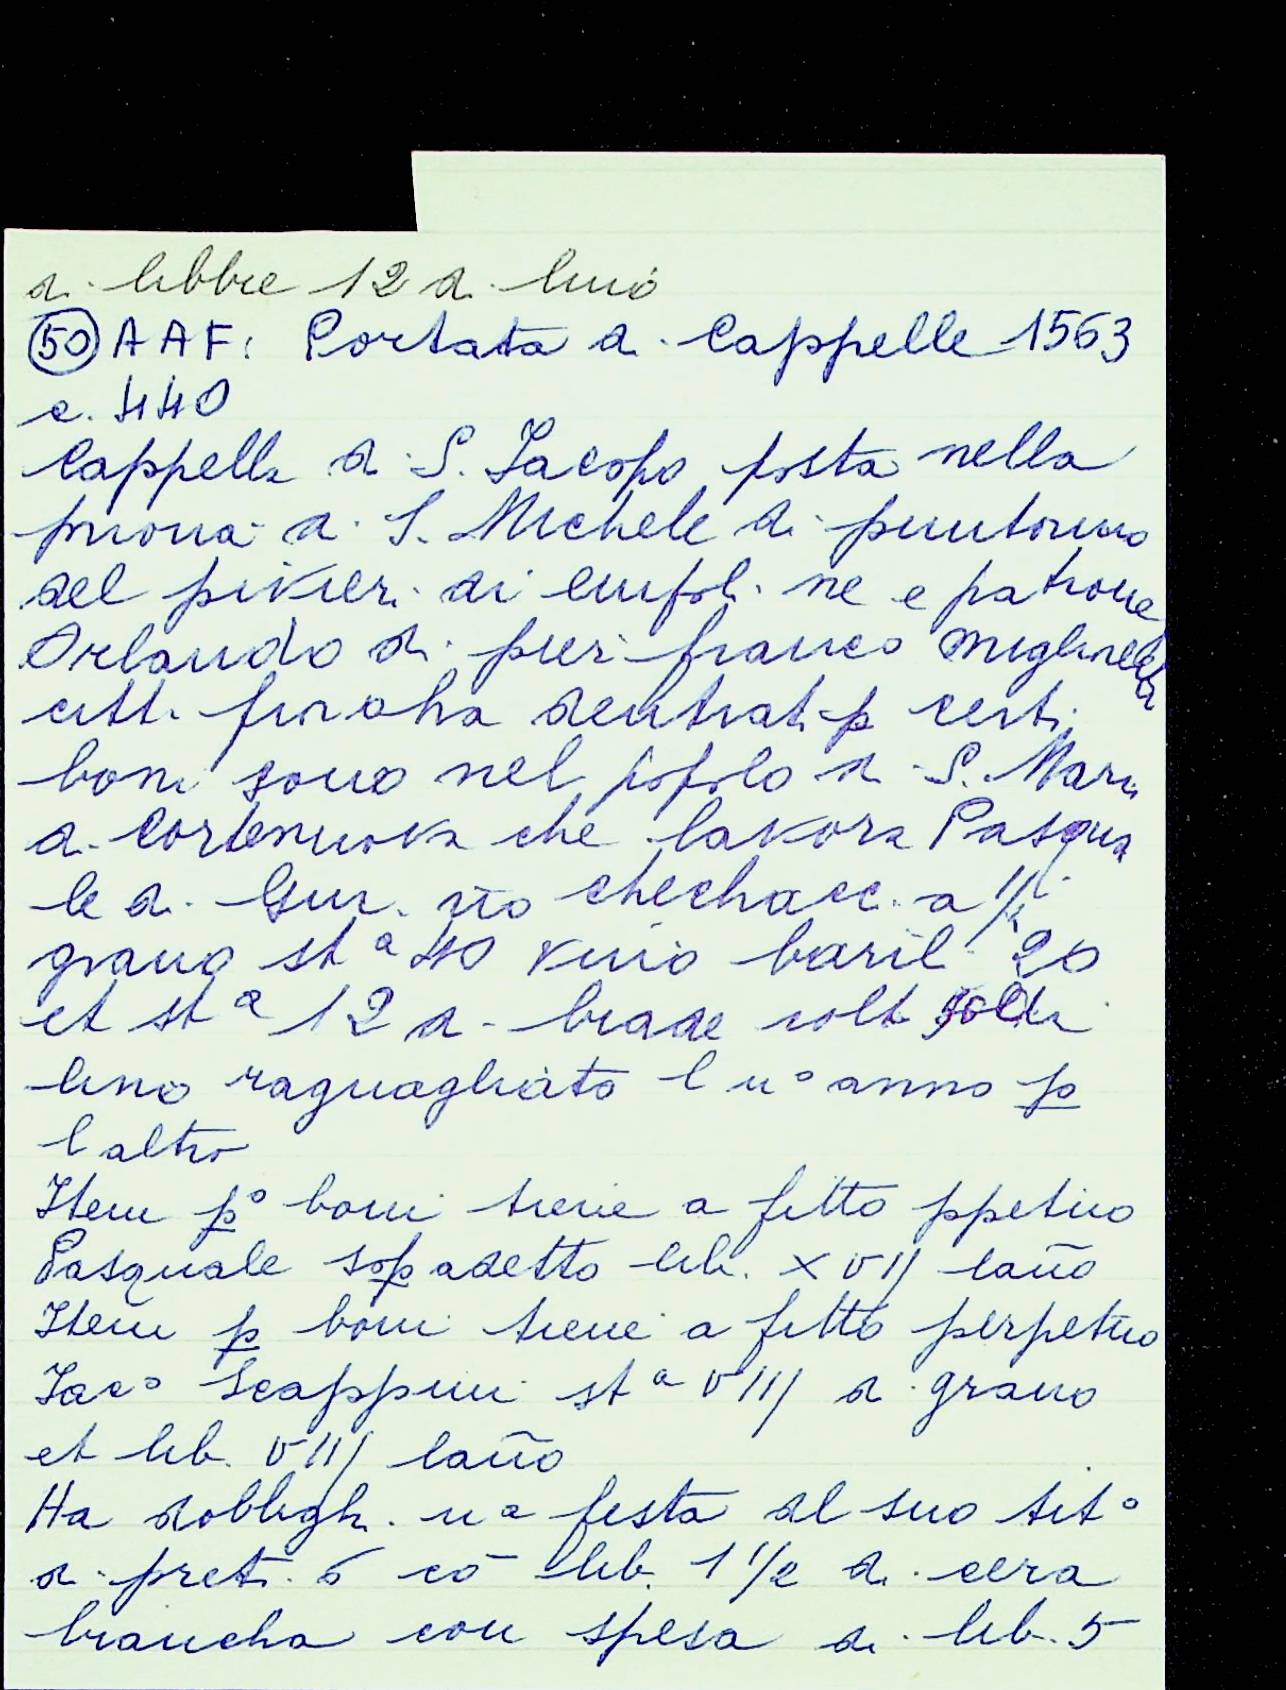 di libbre 12 di lino
50 AAF: Portata di Cappelle 1563
c. 440
Cappella di S. Jacopo posta nella
prioria di S. Michele di puntormo
del pivieri di Empoli ne e patrone
Orlando di pier francesco
citt. fior. ha dentrati p certi
boni sono nel popolo di S. Maria
a Cortenuova che lavora Pasqua
le di a 1/2
grano st.a 40 vino baril. 20
et st.a 12 di biade
lino raguagliato l u° anno p
l altro
Item p° boni tiene a fitto ppetuo
Pasquale sopadetto lib. XVII laño
Item p boni tiene a fitto perpetuo
Jac° Scappini st.a VIII di grano
et lib. VIII laño
Ha dobbligh. u.a festa al suo tit°
di preti 6 cō lib. 1 1/2 di cera
biancha con spesa di lib. 5